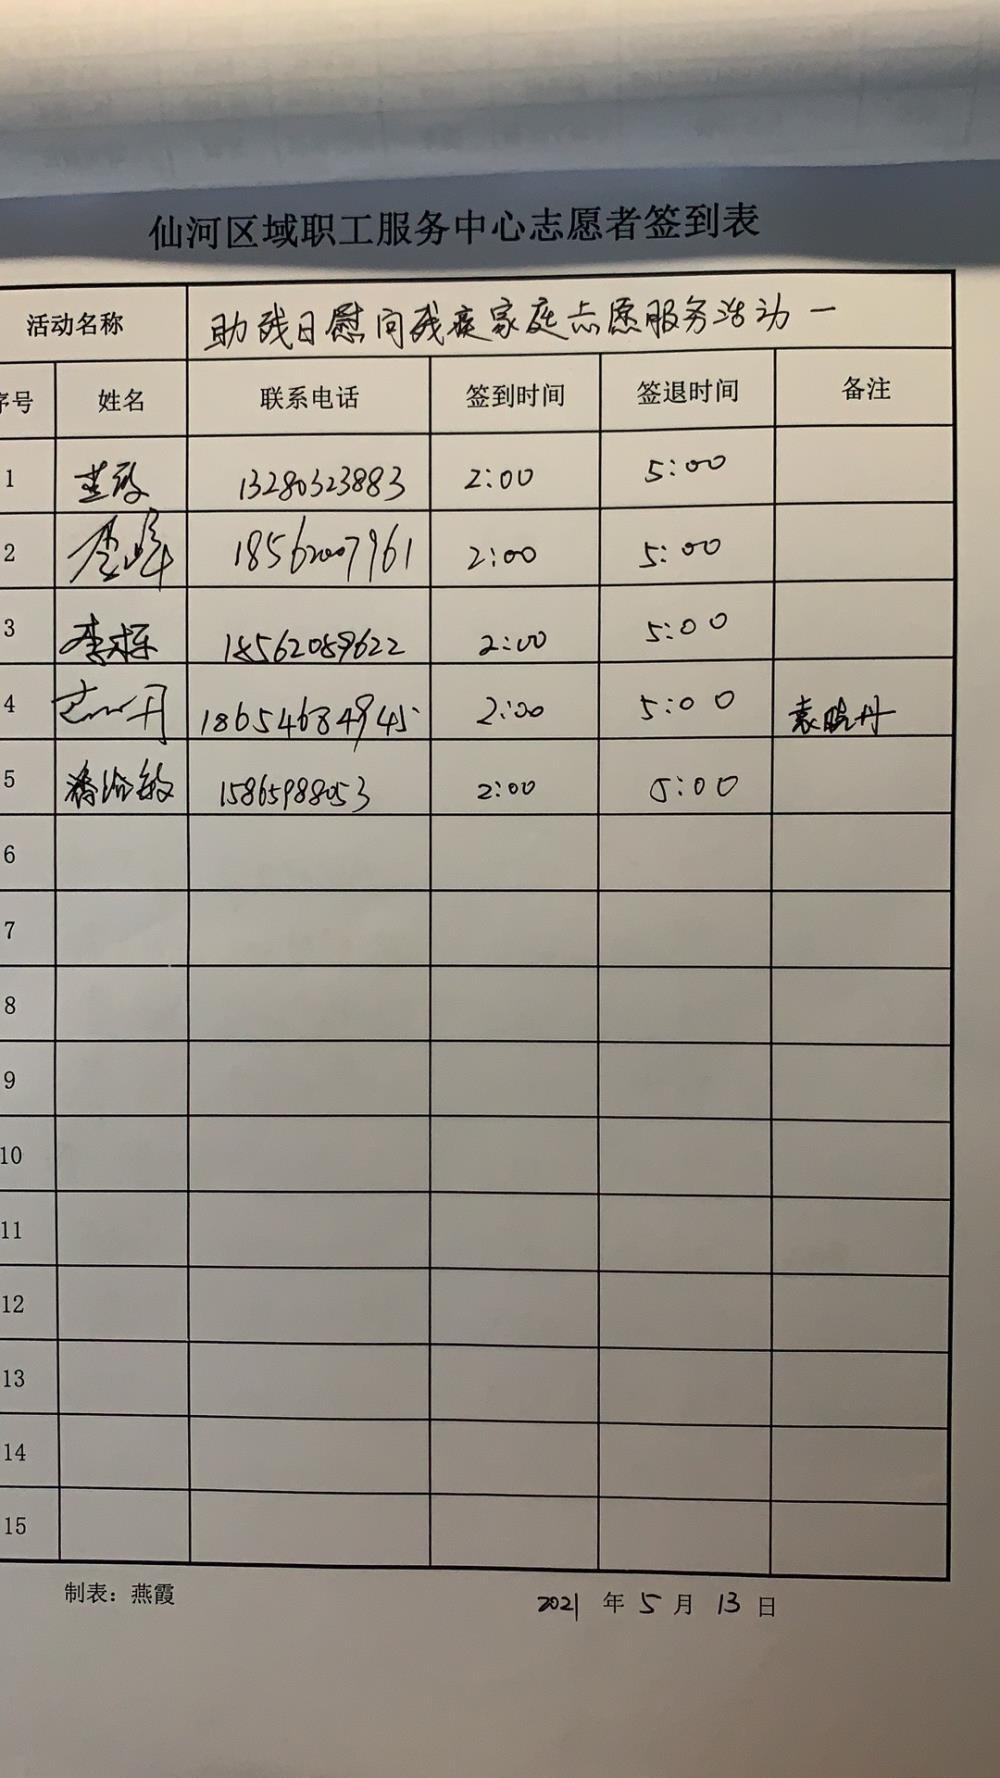 仙河区域职工服务中心志愿者签到表
活动名称 助残日慰问残疾家庭志愿服务活动一
序号 姓名 联系电话 签到时间 签退时间 备注
1 13280323883 2:00 5:00
2 李峰 18562007961 2:00 5:00
3 李栋 18562089622 2:00 5:00
4 18654684945 2:00 5:00 袁晓丹
5 敏 15865988053 2:00 5:00
6
7
8
9
10
11
12
13
14
15
制表：燕霞 2021 年 5 月 13 日